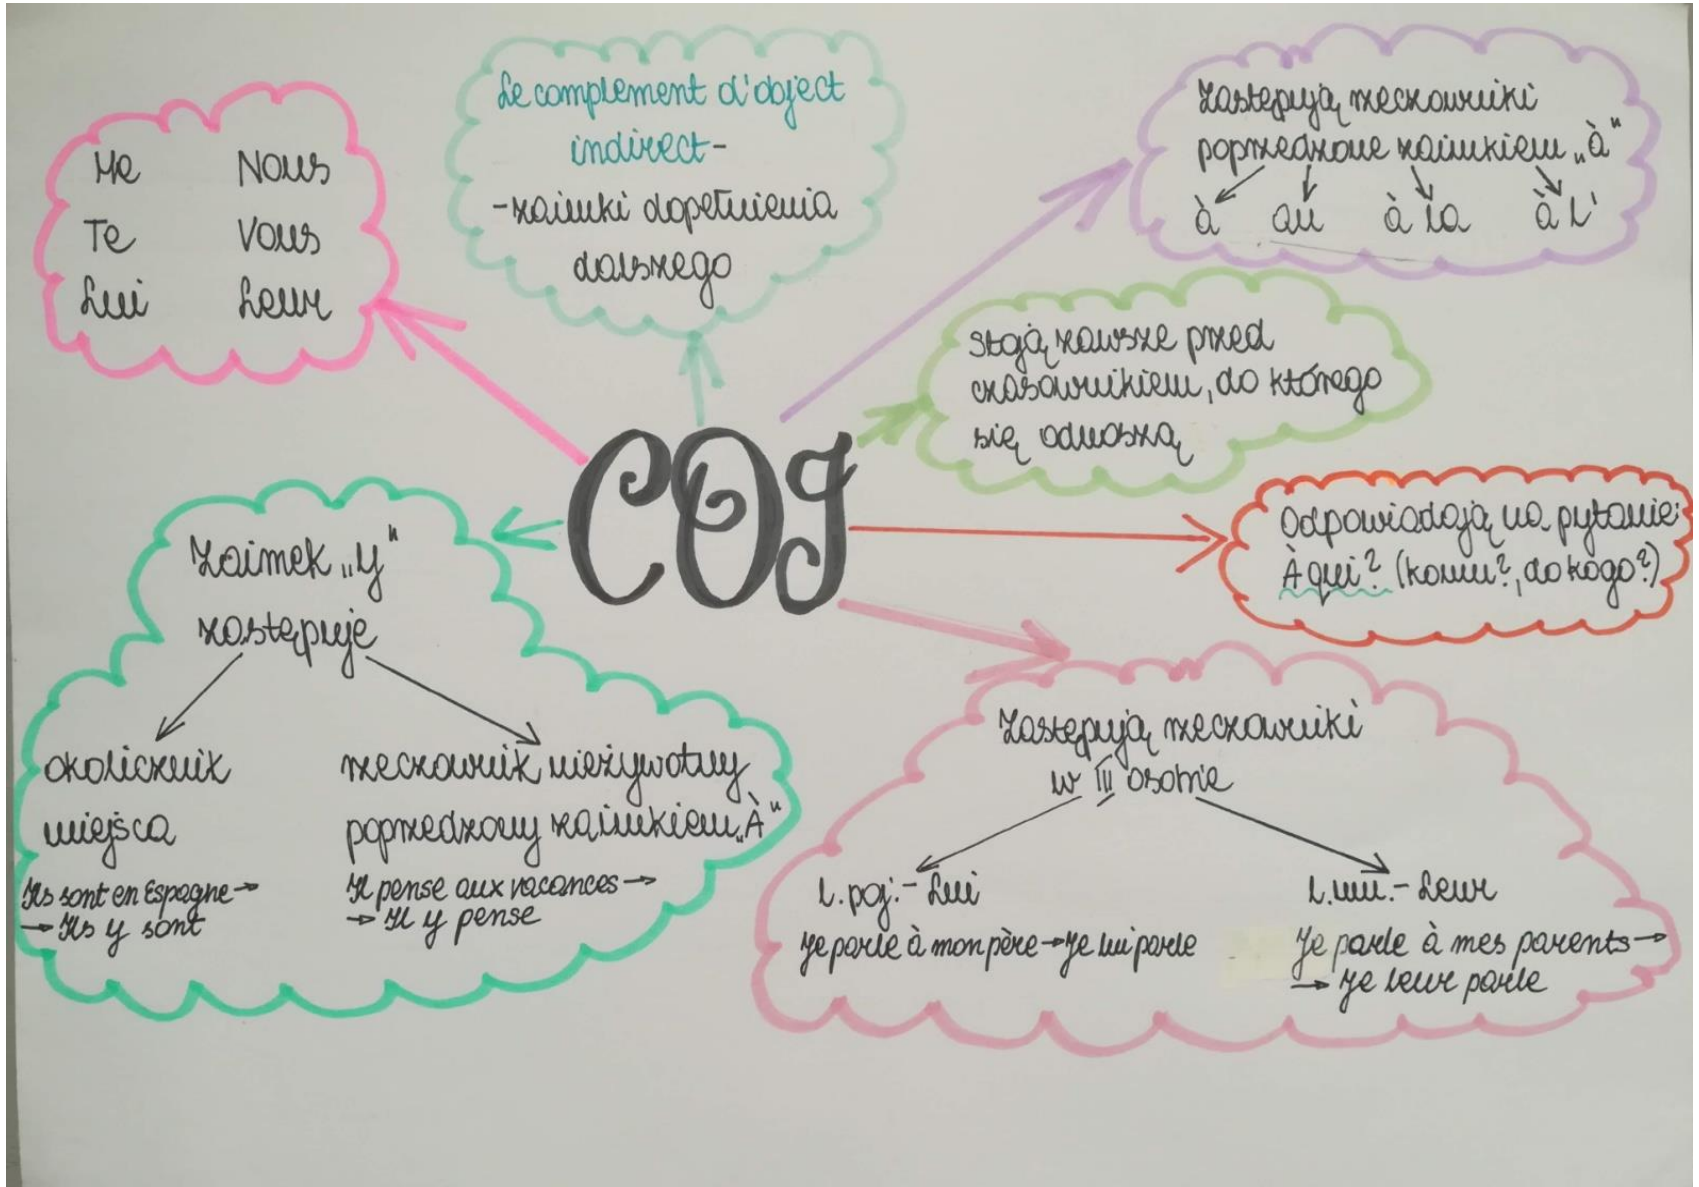 Me Nous
Te Vous
Lui Leur
Le complement d'object
indirect-
-zaimki dopełnienia
dalszego
Zastępują rzeczowniki
poprzedzone zaimkiem „à"
à au à la à l'
Stoją zawsze przed
czasownikiem, do którego
się odnoszą
COI
Odpowiadają na pytanie:
À qui? (komu?, do kogo?)
Zaimek „y"
zastępuje
okolicznik
miejsca
Ils sont en Espagne →
→ Ils y sont
rzeczownik nieżywotny
poprzedzony zaimkiem „À"
Il pense aux vacances →
→ Il y pense
Zastępują rzeczowniki
w III osobie
l. poj. - Lui
Je parle à mon père → Je lui parle
l. mn. - Leur
Je parle à mes parents →
→ Je leur parle